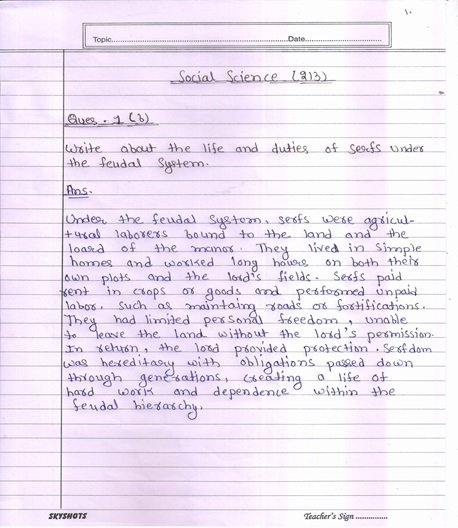 1.
Topic.......................................................Date.............................
Social Science (213)
Ques. 1 (b)
Write about the life and duties of serfs under
the feudal system.
Ans.
Under the feudal system, serfs were agricul-
tural laborers bound to the land and the
loard of the manor. They lived in simple
homes and worked long hours on both their
own plots and the lord's fields. Serfs paid
rent in crops or goods and performed unpaid
labor. such as maintaing roads or fortifications.
They had limited personal freedom, unable
to leave the land without the lord's permission.
In return, the lord provided protection. Serfdom
was hereditary with obligations passed down
through generations, creating a life of
hard work and dependence within the
feudal hierarchy.
SKYSHOTS
Teacher's Sign ...............